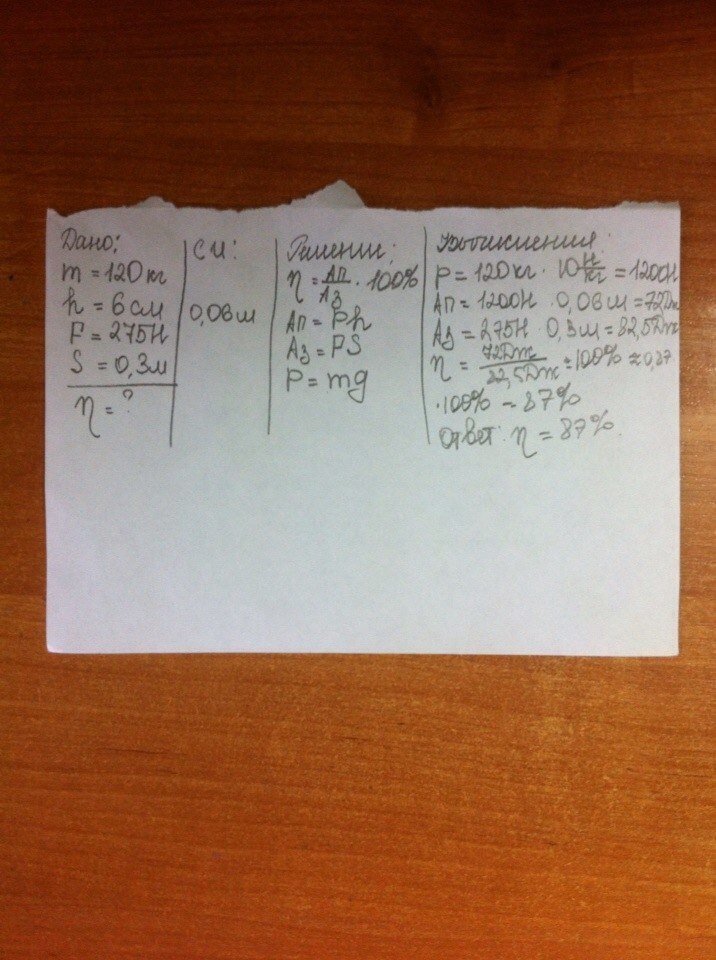 Дано:
m = 120 кг
h = 6 см
F = 275Н
S = 0,3м
η = ?
СИ:
0,06м
Решение:
η = Ап/Аз · 100%
Ап = Ph
Аз = FS
P = mg
Вычисления:
P = 120кг · 10 Н/кг = 1200Н
Ап = 1200Н · 0,06м = 72Дж
Аз = 275Н · 0,3м = 82,5Дж
η = 72Дж/82,5Дж · 100% ≈ 0,87
·100% = 87%
Ответ: η = 87%.